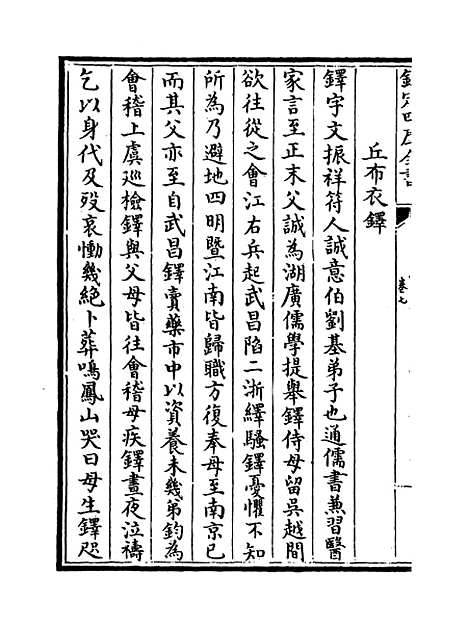 欽定四庫全書
卷七
丘布衣鐸
鐸字文振祥符人誠意伯劉基弟子也通儒書兼習醫
家言至正末父誠為湖廣儒學提舉鐸侍母留吳越間
欲往從之會江右兵起武昌陷二浙繹騷鐸憂懼不知
所為乃避地四明暨江南皆歸職方復奉母至南京已
而其父亦至自武昌鐸賣藥市中以資養未幾弟鈞為
會稽上虞巡檢鐸與父母皆往會稽母疾鐸晝夜泣禱
乞以身代及歿哀慟幾絕卜葬鳴鳳山哭曰母生鐸咫